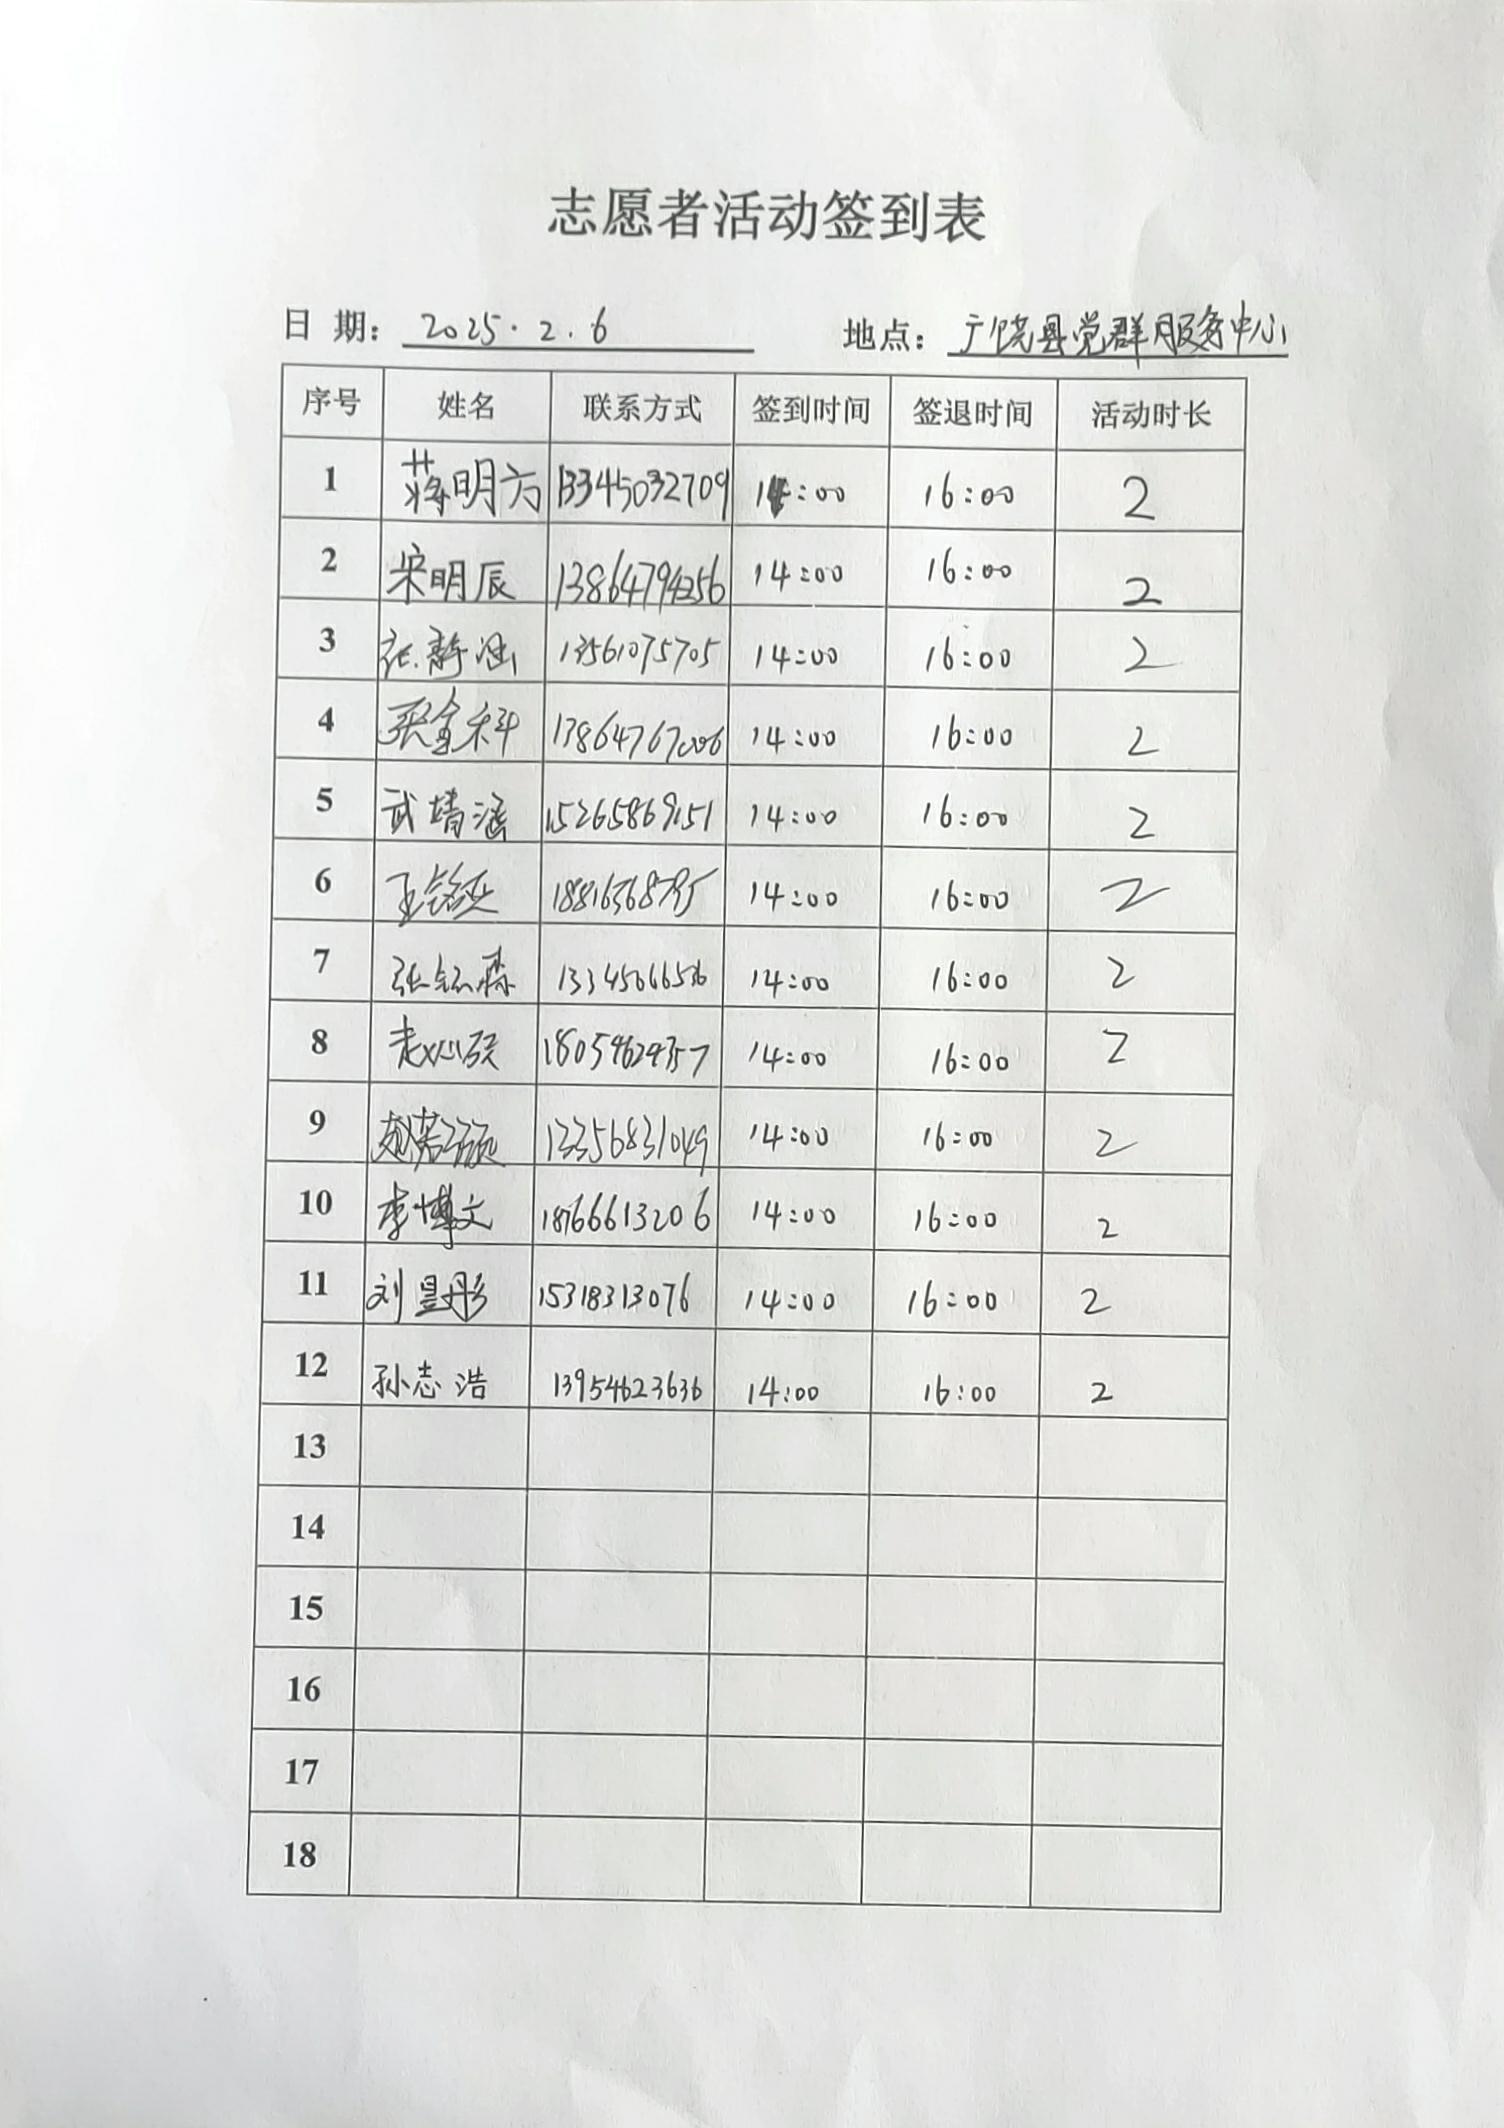 志愿者活动签到表
日 期: 2025.2.6 地点: 广饶县党群服务中心
序号 姓名 联系方式 签到时间 签退时间 活动时长
1 蒋明方 13345032709 14:00 16:00 2
2 宋明辰 13864794256 14:00 16:00 2
3 张静涵 13561075705 14:00 16:00 2
4 张金科 13864767006 14:00 16:00 2
5 武靖涵 15265869151 14:00 16:00 2
6 14:00 16:00 2
7 14:00 16:00 2
8 14:00 16:00 2
9 13356831049 14:00 16:00 2
10 李博文 18766613206 14:00 16:00 2
11 刘昱彤 15318313076 14:00 16:00 2
12 孙志浩 13954623636 14:00 16:00 2
13
14
15
16
17
18